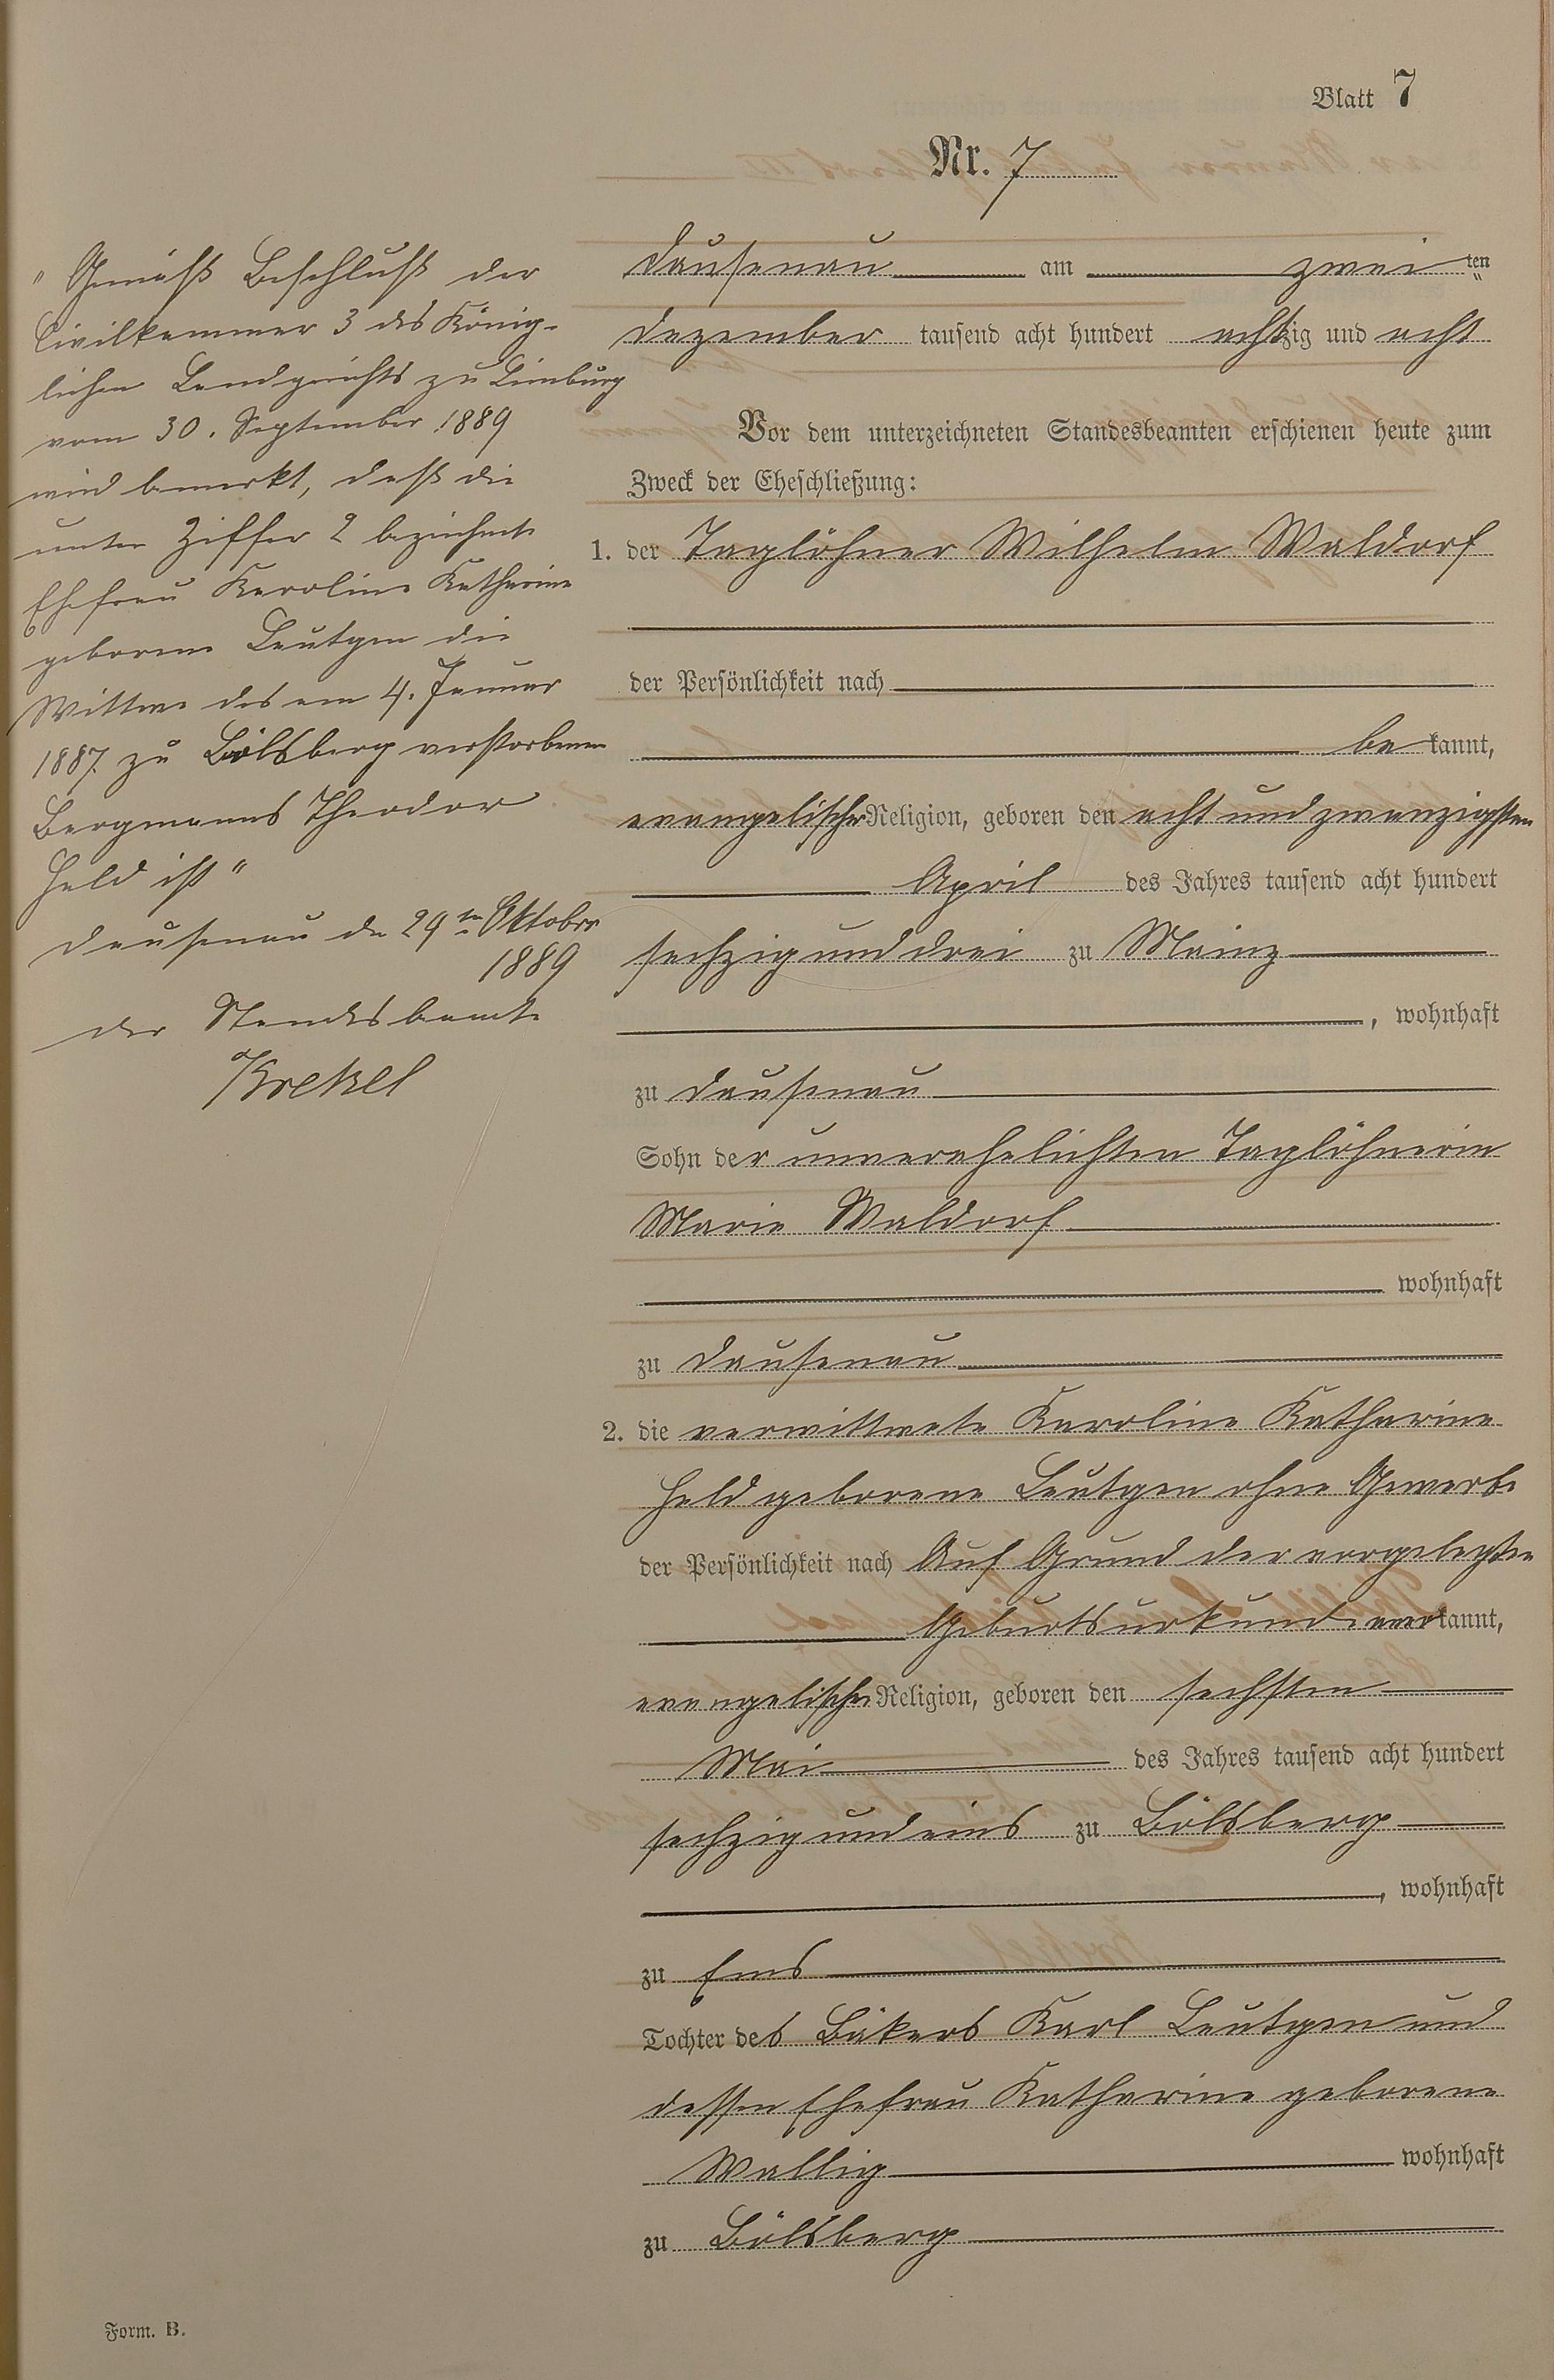 Blatt 7
Nr. 7
"Gemäß Beschluß der
Civilkammer 3 des König-
lichen Landgerichts zu Limburg
vom 30. September 1889
wird bemerkt, daß die
unter Ziffer 2 bezeichnete
Ehefrau Karoline Katharine
geborene Leutgen die
Wittwe des am 4. Januar
1887 zu Bölsberg verstorbenen
Bergmanns Theodor
Held ist"
Dausenau den 29ten Oktober
1889
Der Standesbeamte
Krekel
Dausenau am zwei ten
Dezember tausend acht hundert achtzig und acht
Vor dem unterzeichneten Standesbeamten erschienen heute zum
Zweck der Eheschließung:
1. der Taglöhner Wilhelm Waldorf
der Persönlichkeit nach
be kannt,
evangelischer Religion, geboren den acht und zwanzigsten
April des Jahres tausend acht hundert
sechzig und drei zu Mainz
, wohnhaft
zu Dausenau
Sohn der unverehelichten Taglöhnerin
Marie Waldorf
wohnhaft
zu Dausenau
2. die verwittwete Karoline Katharine
Held geborene Leutgen ohne Gewerbe
der Persönlichkeit nach Auf Grund der vorgelegten
Geburtsurkunde anerkannt,
evangelischer Religion, geboren den sechsten
Mai des Jahres tausend acht hundert
sechzig und eins zu Bölsberg
, wohnhaft
zu Ems
Tochter des Bäkers Karl Leutgen und
dessen Ehefrau Katharine geborene
Wallig wohnhaft
zu Bölsberg
Form. B.